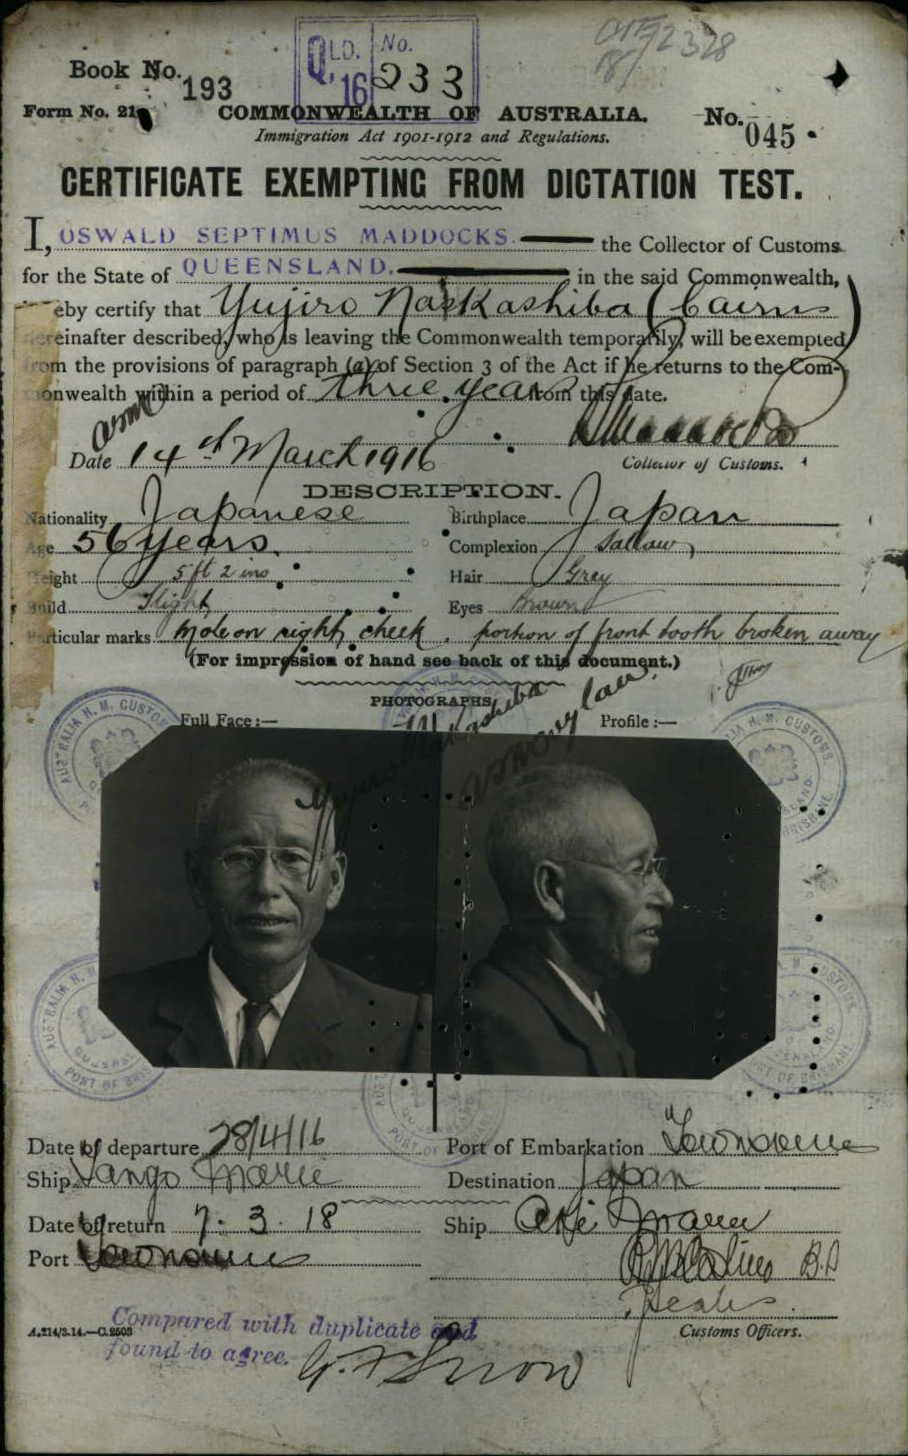 QLD. No.
16 233
Book No. 193
Form No. 21. COMMONWEALTH OF AUSTRALIA. No. 045
Immigration Act 1901-1912 and Regulations.
CERTIFICATE EXEMPTING FROM DICTATION TEST.
I, OSWALD SEPTIMUS MADDOCKS. the Collector of Customs
for the State of QUEENSLAND. in the said Commonwealth,
eby certify that Yujiro (Cairns)
ereinafter described, who is leaving the Commonwealth temporarily, will be exempted
om the provisions of paragraph (a) of Section 3 of the Act if he returns to the Com-
onwealth within a period of three years from this date.
Date 14th March 1916
Collector of Customs.
DESCRIPTION.
Nationality Japanese Birthplace Japan
Age 56 years. Complexion Sallow
Height 5 ft 2 ins Hair Grey
Build Slight Eyes Brown
Particular marks Mole on right cheek. portion of front tooth broken away
(For impression of hand see back of this document.)
PHOTOGRAPHS.
Full Face:— Profile:—
AUSTRALIA H. M. CUSTOMS
QUEENSLAND
PORT OF BRISBANE
Date of departure 28/4/16 Port of Embarkation Townsville
Ship Tango Maru Destination Japan
Date of return 7.3.18 Ship Aki Maru
Port Townsville
Customs Officers.
A.214/3.14.—C.2503
Compared with duplicate and
found to agree. G. F. Snow